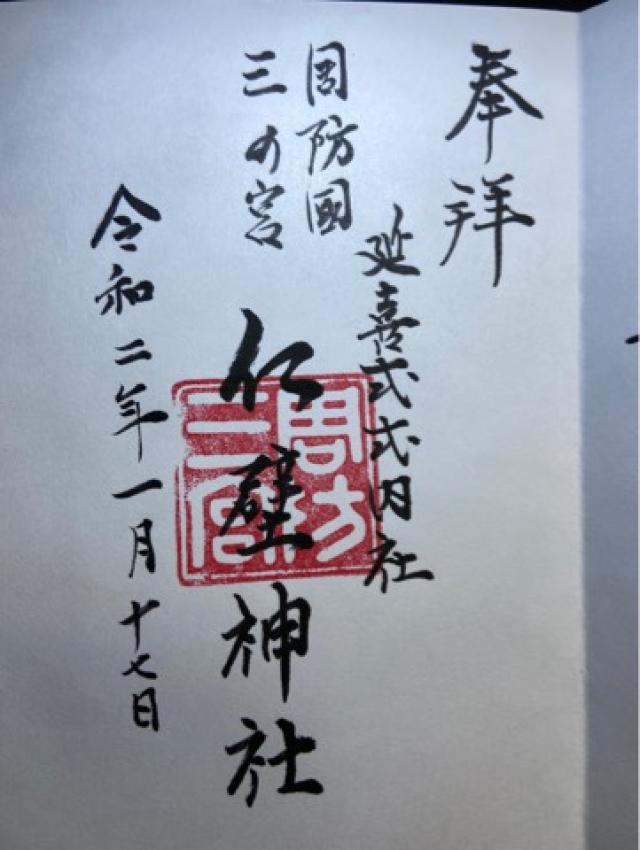 奉拜
延喜式式内社
周防國
三の宮
仁壁神社
周防
三宮
令和二年一月十七日